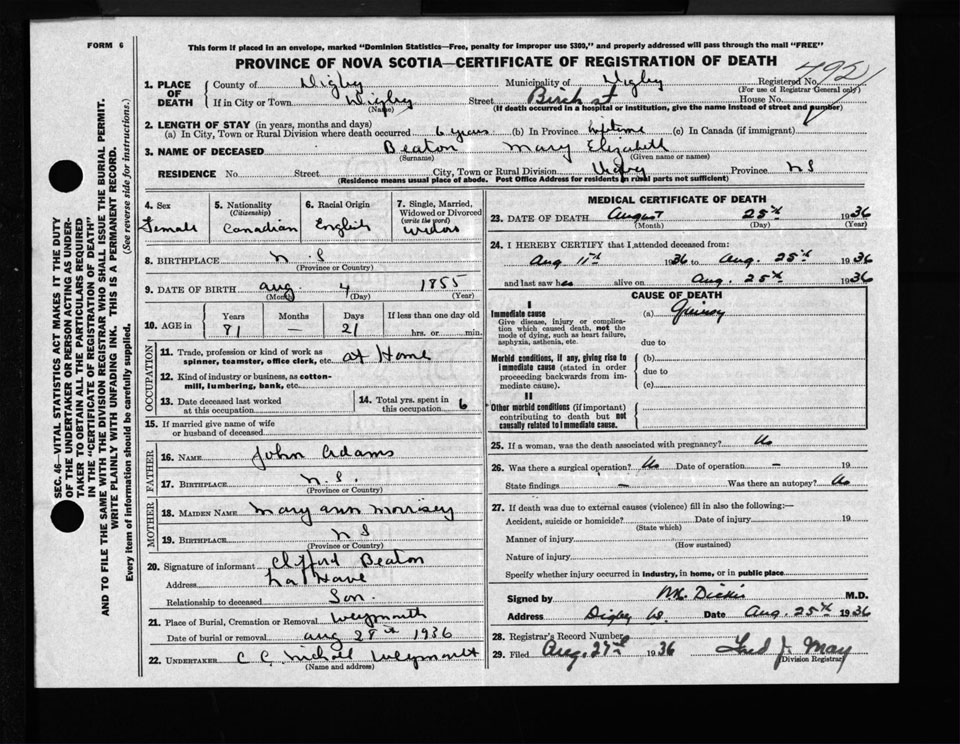 FORM 6
This form if placed in an envelope, marked "Dominion Statistics—Free, penalty for improper use $300," and properly addressed will pass through the mail "FREE"
PROVINCE OF NOVA SCOTIA—CERTIFICATE OF REGISTRATION OF DEATH
492
1. PLACE OF DEATH County of Digby Municipality of Digby Registered No.
(For use of Registrar General only)
If in City or Town Digby Street Birch st House No.
(Name) (If death occurred in a hospital or institution, give the name instead of street and number)
2. LENGTH OF STAY (in years, months and days)
(a) In City, Town or Rural Division where death occurred 6 years (b) In Province lifetime (c) In Canada (if immigrant)
3. NAME OF DECEASED Beaton Mary Elizabeth
(Surname) (Given name or names)
RESIDENCE No. Street City, Town or Rural Division Digby Province N S
(Residence means usual place of abode. Post Office Address for residents in rural parts not sufficient)
4. Sex 5. Nationality (Citizenship) 6. Racial Origin 7. Single, Married, Widowed or Divorced (write the word)
Female Canadian English Widow
8. BIRTHPLACE N. S
(Province or Country)
9. DATE OF BIRTH Aug. 4 1855
(Month) (Day) (Year)
10. AGE in Years Months Days If less than one day old
81 — 21 hrs. or min.
OCCUPATION
11. Trade, profession or kind of work as spinner, teamster, office clerk, etc. at Home
12. Kind of industry or business, as cotton-mill, lumbering, bank, etc.
13. Date deceased last worked at this occupation
14. Total yrs. spent in this occupation 6
15. If married give name of wife or husband of deceased
FATHER
16. NAME John Adams
17. BIRTHPLACE N. S.
(Province or Country)
MOTHER
18. MAIDEN NAME Mary Ann Morrisey
19. BIRTHPLACE N S
(Province or Country)
20. Signature of informant Clifford Beaton
Address La Have
Relationship to deceased Son.
21. Place of Burial, Cremation or Removal Weymouth
Date of burial or removal Aug 28th 1936
22. UNDERTAKER C C Weymouth
(Name and address)
MEDICAL CERTIFICATE OF DEATH
23. DATE OF DEATH August 25th 1936
(Month) (Day) (Year)
24. I HEREBY CERTIFY that I attended deceased from:
Aug 11th 1936 to Aug. 25th 1936
and last saw her alive on Aug. 25th 1936
CAUSE OF DEATH
I
Immediate cause
Give disease, injury or complication which caused death, not the mode of dying, such as heart failure, asphyxia, asthenia, etc.
(a) Quinsy
due to
Morbid conditions, if any, giving rise to immediate cause (stated in order proceeding backwards from immediate cause).
(b)
due to
(c)
II
Other morbid conditions (if important) contributing to death but not causally related to immediate cause.
25. If a woman, was the death associated with pregnancy? No
26. Was there a surgical operation? No Date of operation — 19
State findings — Was there an autopsy? No
27. If death was due to external causes (violence) fill in also the following:—
Accident, suicide or homicide? Date of injury 19
(State which)
Manner of injury
(How sustained)
Nature of injury
Specify whether injury occurred in industry, in home, or in public place
Signed by Dickie M.D.
Address Digby Date Aug. 25th 1936
28. Registrar's Record Number
29. Filed Aug. 27th 1936 Fred J. May
(Division Registrar)
SEC. 46—VITAL STATISTICS ACT MAKES IT THE DUTY
OF THE UNDERTAKER OR PERSON ACTING AS UNDER-
TAKER TO OBTAIN ALL THE PARTICULARS REQUIRED
IN THE "CERTIFICATE OF REGISTRATION OF DEATH"
AND TO FILE THE SAME WITH THE DIVISION REGISTRAR WHO SHALL ISSUE THE BURIAL PERMIT.
WRITE PLAINLY WITH UNFADING INK. THIS IS A PERMANENT RECORD.
Every item of information should be carefully supplied. (See reverse side for instructions.)